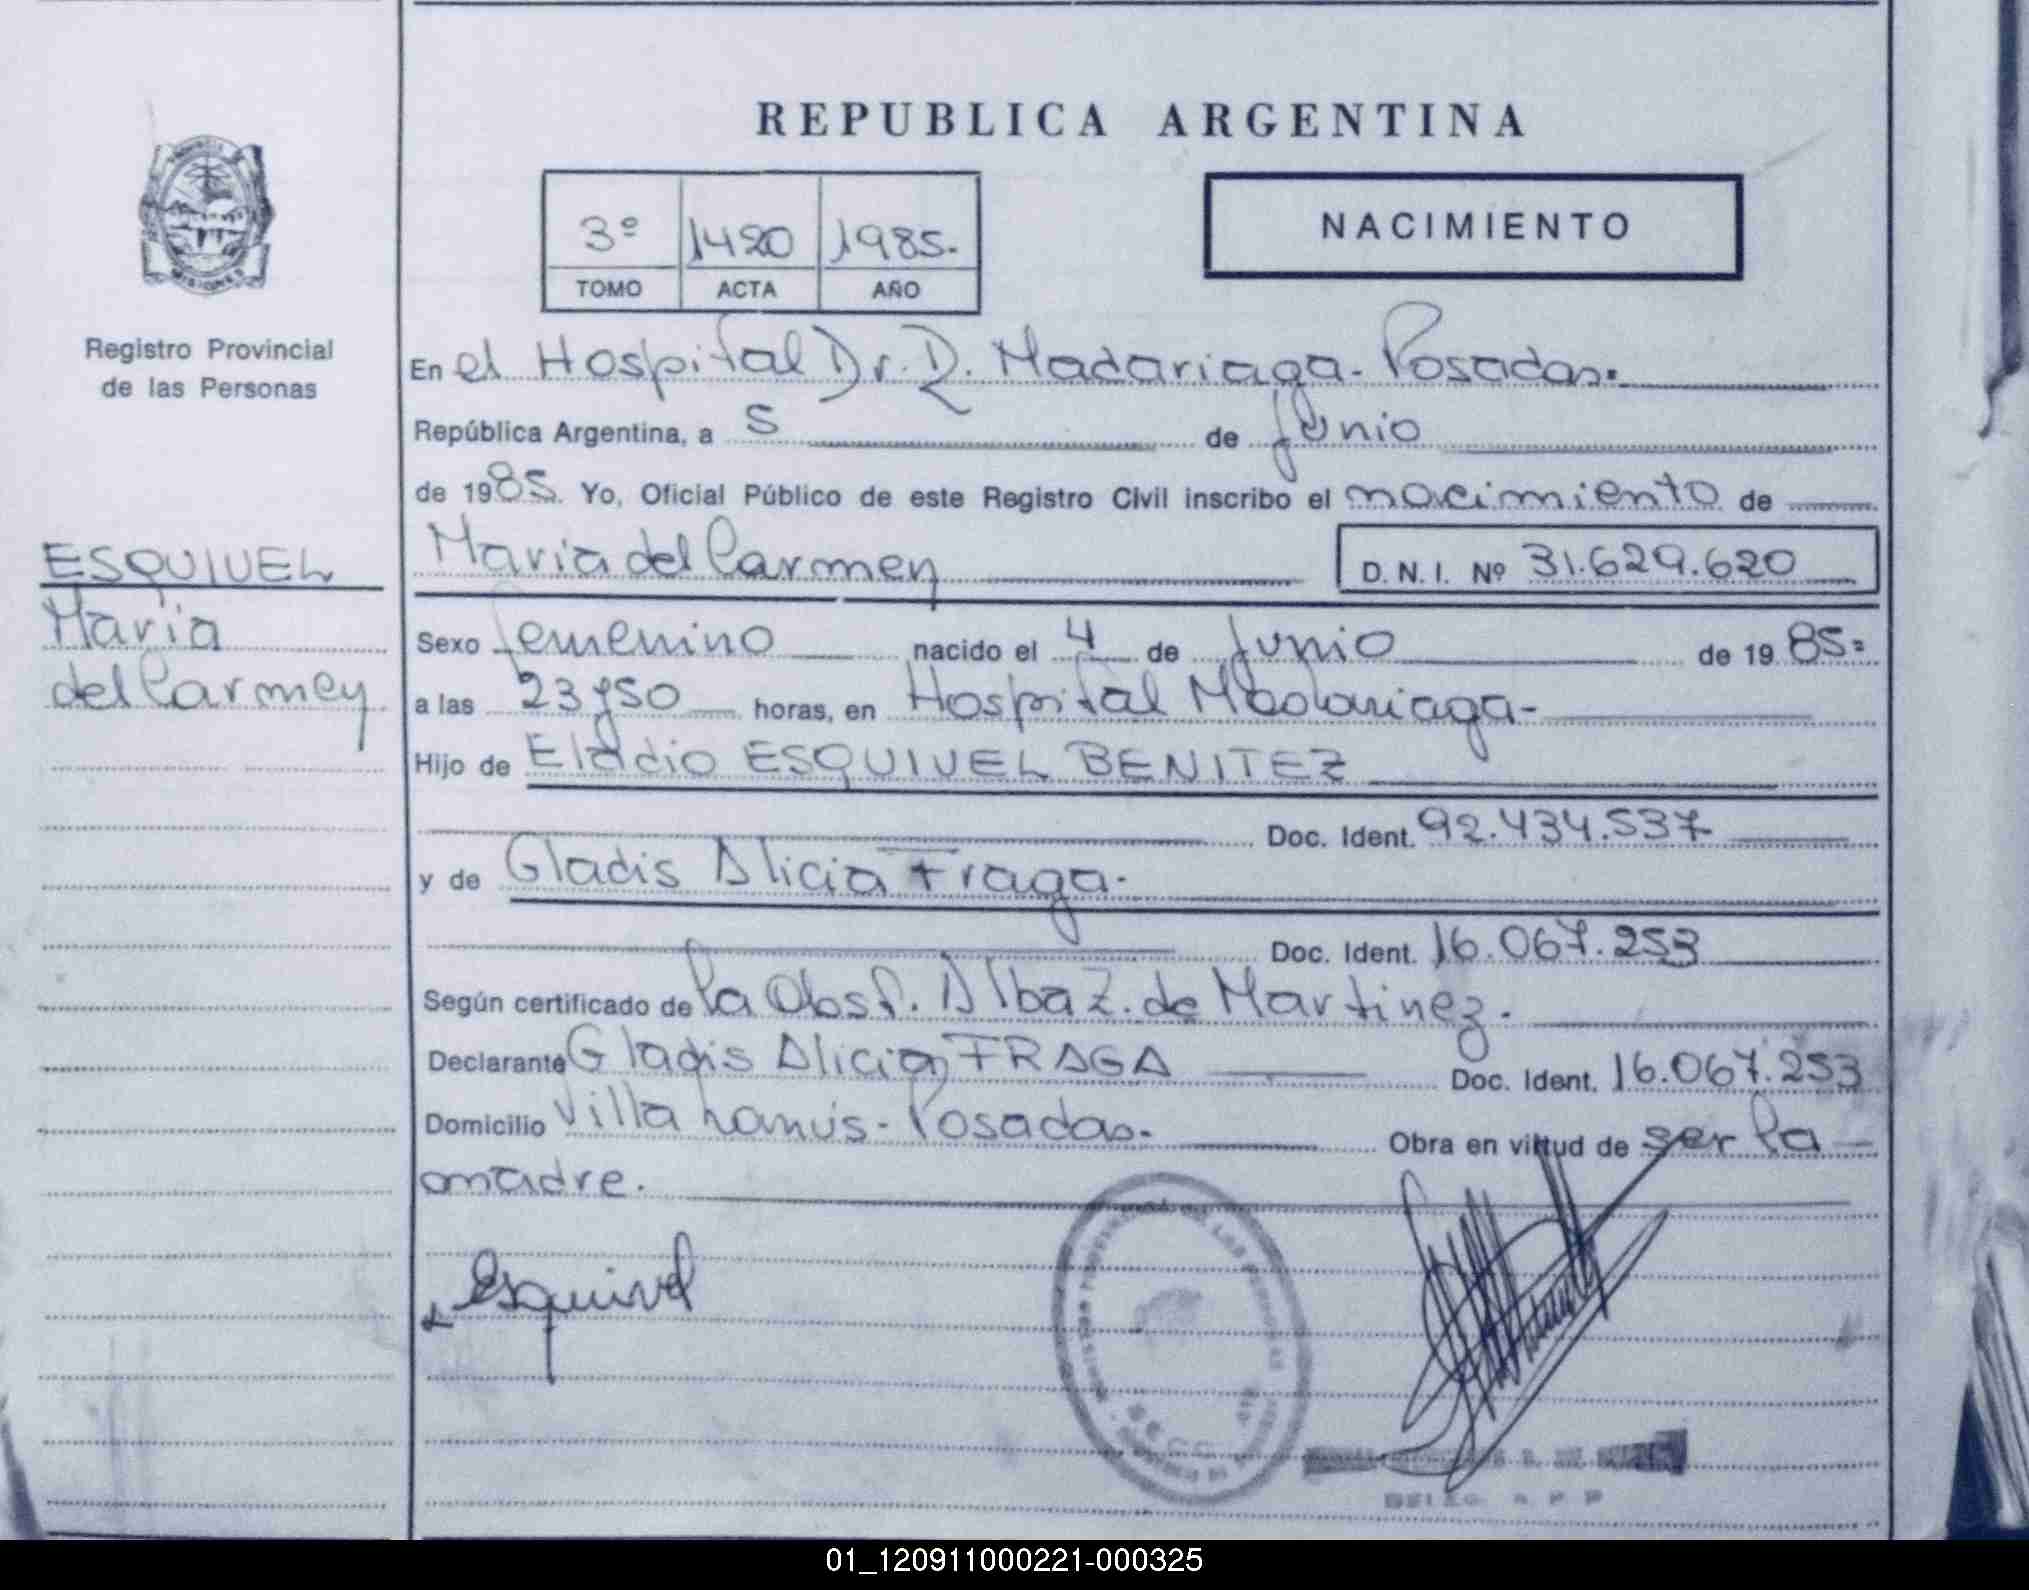 REPUBLICA ARGENTINA
3º 1420 1985.
TOMO ACTA AÑO
NACIMIENTO
MISIONES
Registro Provincial
de las Personas
ESQUIVEL
María
del Carmen
En el Hospital Dr. R. Madariaga. Posadas.
República Argentina, a 5 de Junio
de 1985. Yo, Oficial Público de este Registro Civil inscribo el nacimiento de
María del Carmen D. N. I. Nº 31.629.620
Sexo femenino nacido el 4 de Junio de 19 85=
a las 23 y 50 horas, en Hospital Madariaga-
Hijo de Eladio ESQUIVEL BENITEZ
Doc. Ident. 92.434.537
y de Gladis Alicia Fraga.
Doc. Ident. 16.067.253
Según certificado de la Obst. Alba Z. de Martinez.
Declarante Gladis Alicia FRAGA Doc. Ident. 16.067.253
Domicilio Villa Lanús - Posadas. Obra en virtud de ser la
madre.
Esquivel
01_120911000221-000325